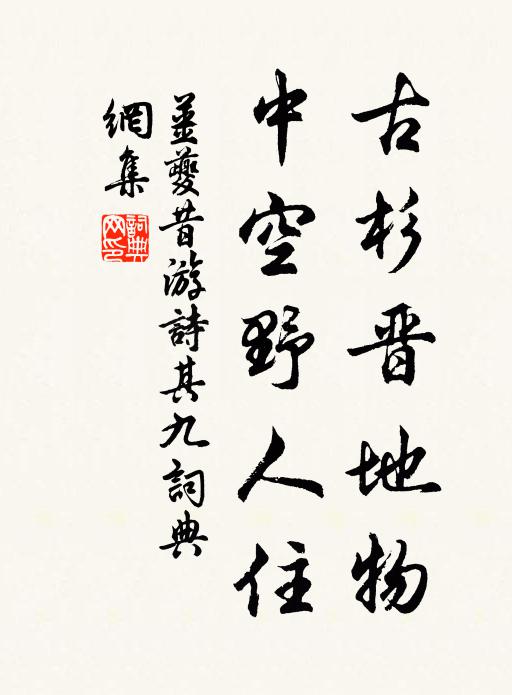 古杉晋地物
中空野人住
姜夔昔游詩其九詞典
網集
詞典網印